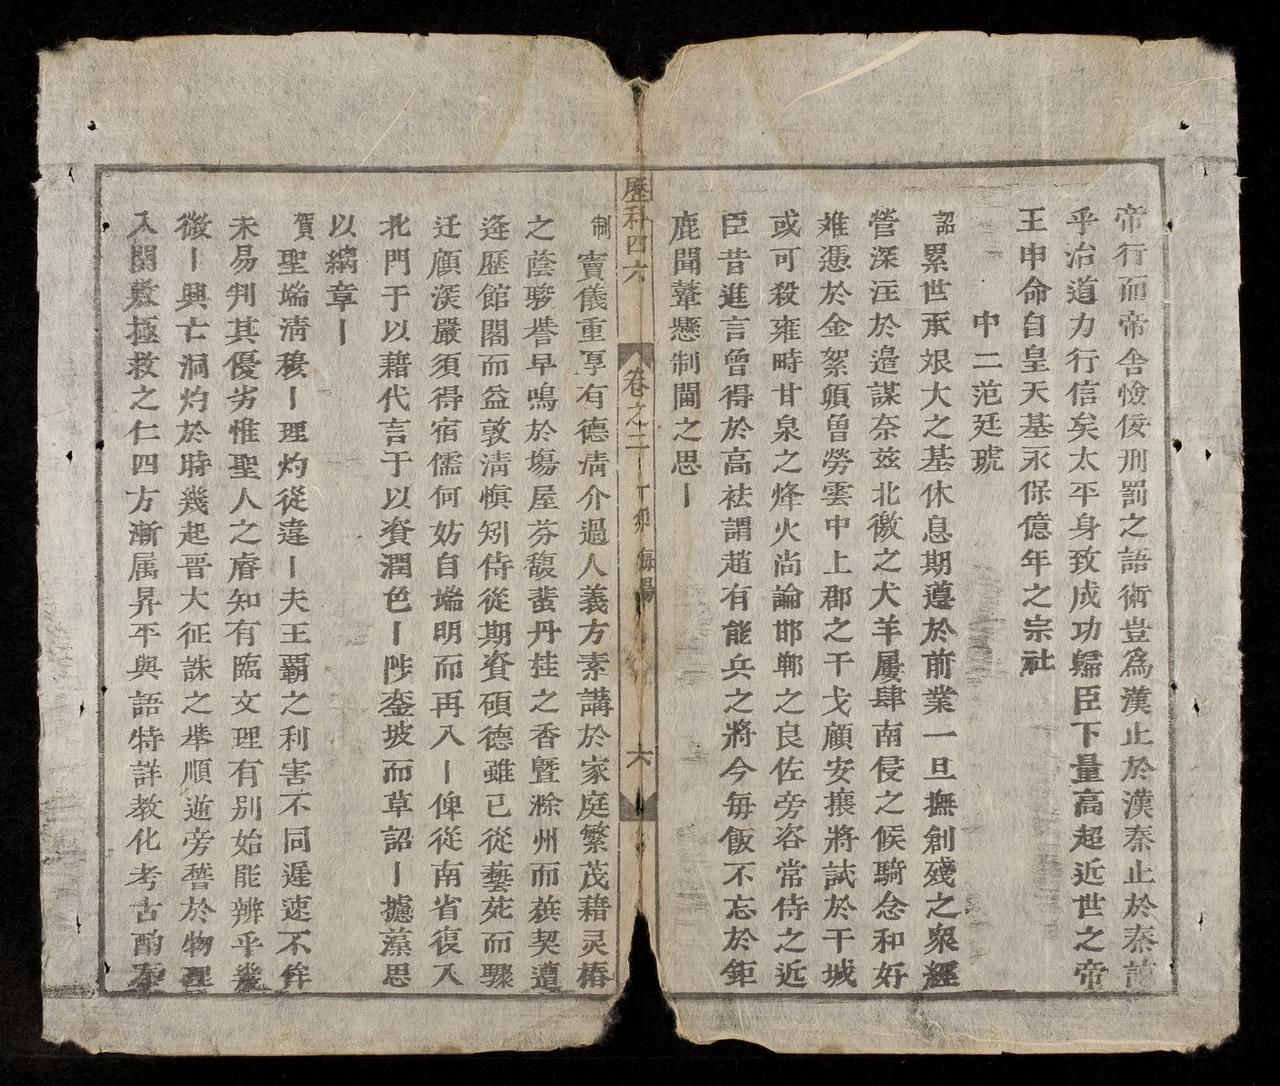 帝行而帝舍憸佞刑罰之語術豈為漢止於漢秦止於秦
乎治道力行信矣太平身致成功歸臣下量高超近世之帝
王申命自皇天基永保億年之宗社
中二范廷琥
詔累世承艰大之基休息期遵於前業一旦撫創殘之衆經
營深注於邉謀奈兹北徼之犬羊屢肆南侵之候騎念和好
难憑於金絮頒曾勞雲中上郡之干戈顧安攘將試於干城
或可殺雍時甘泉之烽火尚論邯鄲之良佐旁咨常侍之近
臣昔進言曾得於高祛謂趙有能兵之將今每飯不忘於鉅
鹿聞鼙懸制閫之思｜
歷科四六
卷之二
丁卯
海陽
六
制竇儀重厚有德清介過人義方素講於家庭繁茂藉灵椿
之蔭駿譽早鳴於塲屋芬馥蜚丹桂之香曁滁州而蓂契遭
逄歷館閣而益敦清慎矧侍從期資碩德雖已從藝苑而驟
迁顧深嚴須得宿儒何妨自端明而再入｜俾從南省復入
北門于以藉代言于以資潤色｜陟銮坡而草詔｜攄藻思
以繍章｜
賀聖端淸穆｜理灼從違｜夫王覇之利害不同遲速不侔
未易判其優劣惟聖人之睿知有臨文理有别始能辨乎幾
微｜興亡洞灼於時幾起晋大征誅之舉順逆旁詧於物理
入関敷極救之仁四方漸属昇平與語特詳教化考古酌